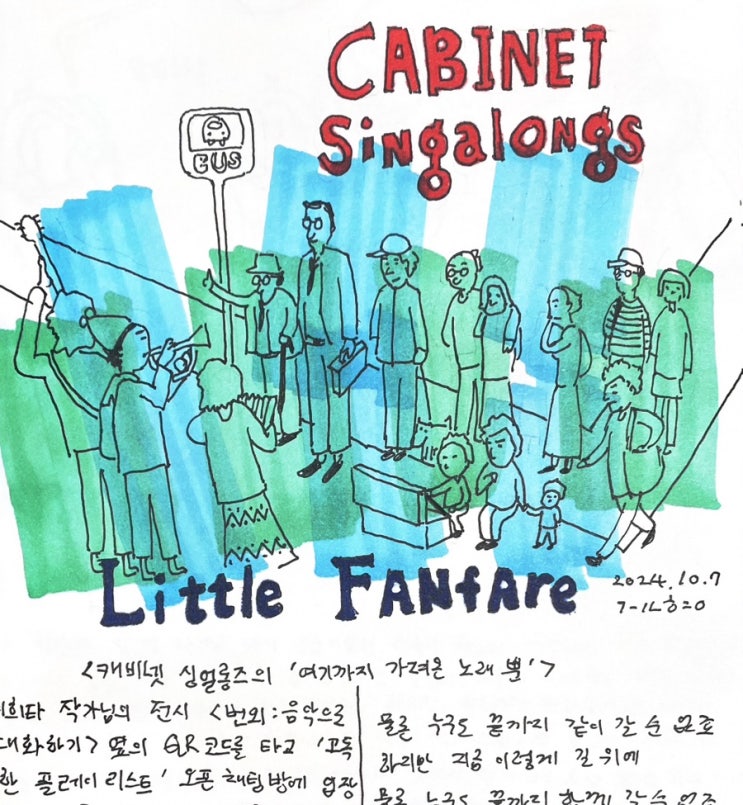 CABINET
Singalongs
BUS
Little FANfAre
2024.10.7
<캐비넷 싱얼롱즈의 '여기까지 가져온 노래 뿐'>
작가님의 전시 <번외:음악으로
대화하기> 옆의 QR코드를 타고 '고독
한 플레이리스트' 오픈채팅방에 입장
물론 누구도 끝까지 같이 갈 순 없조
하지만 지금 이렇게 길 위에
물론 누구도 끝까지 함께 갈 순 없죠